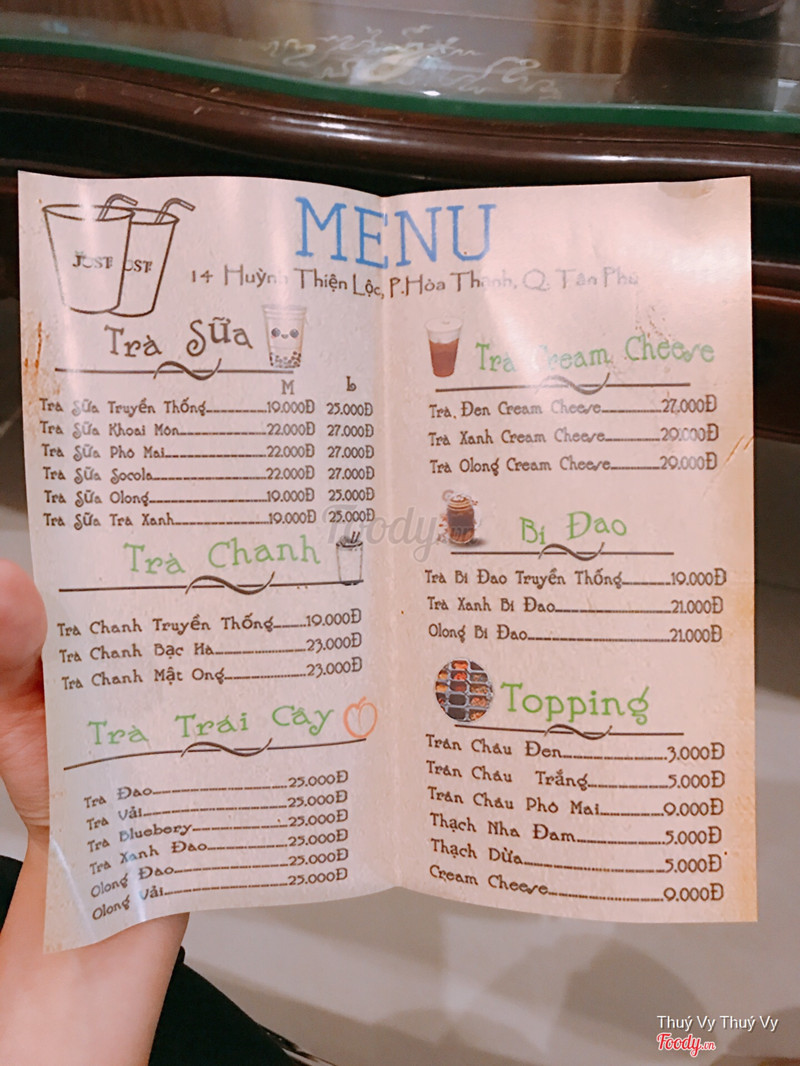 JUST
JUST
MENU
14 Huỳnh Thiện Lộc, P.Hòa Thạnh, Q. Tân Phú
Trà Sữa
M L
Trà Sữa Truyền Thống 19.000Đ 25.000Đ
Trà Sữa Khoai Môn 22.000Đ 27.000Đ
Trà Sữa Phô Mai 22.000Đ 27.000Đ
Trà Sữa Socola 22.000Đ 27.000Đ
Trà Sữa Olong 19.000Đ 25.000Đ
Trà Sữa Trà Xanh 19.000Đ 25.000Đ
Trà Chanh
Trà Chanh Truyền Thống 19.000Đ
Trà Chanh Bạc Hà 23.000Đ
Trà Chanh Mật Ong 23.000Đ
Trà Trái Cây
Trà Đào 25.000Đ
Trà Vải 25.000Đ
Trà Bluebery 25.000Đ
Trà Xanh Đào 25.000Đ
Olong Đào 25.000Đ
Olong Vải 25.000Đ
Trà Cream Cheese
Trà Đen Cream Cheese 27.000Đ
Trà Xanh Cream Cheese 29.000Đ
Trà Olong Cream Cheese 29.000Đ
Bí Đao
Trà Bí Đao Truyền Thống 19.000Đ
Trà Xanh Bí Đao 21.000Đ
Olong Bí Đao 21.000Đ
Topping
Trân Châu Đen 3.000Đ
Trân Châu Trắng 5.000Đ
Trân Châu Phô Mai 9.000Đ
Thạch Nha Đam 5.000Đ
Thạch Dừa 5.000Đ
Cream Cheese 9.000Đ
Foody.vn
Thuý Vy Thuý Vy
Foody.vn